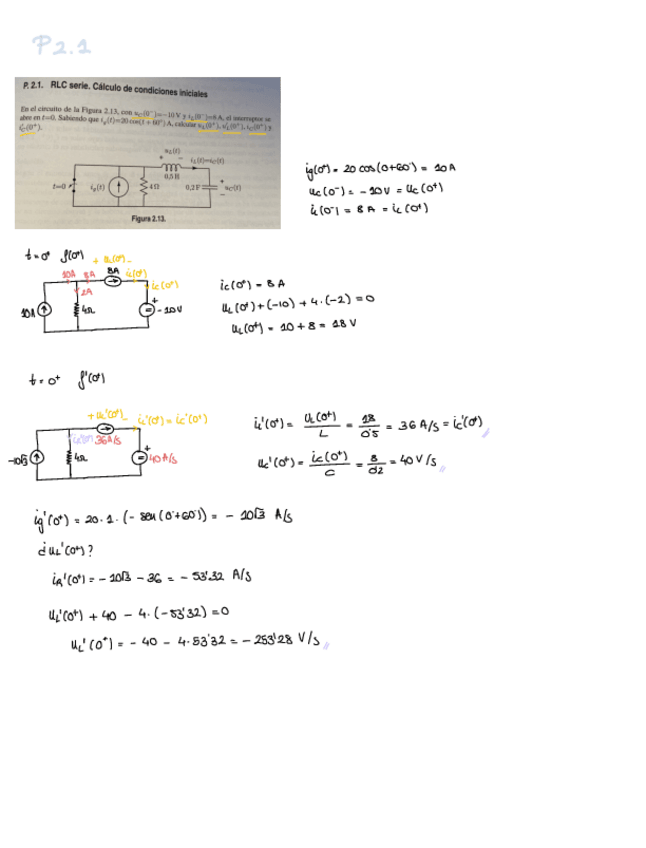 P2.1
P. 2.1. RLC serie. Cálculo de condiciones iniciales
En el circuito de la Figura 2.13, con u_C(0⁻)=−10 V y i_L(0⁻)=8 A, el interruptor se
abre en t=0. Sabiendo que i_g(t)=20 cos(t + 60°) A, calcular u_L(0⁺), u'_L(0⁺), i_C(0⁺) y
i'_C(0⁺).
u_L(t)
+ −
i_L(t)=i_C(t)
0,5 H
t=0 i_g(t) 4Ω 0,2 F + u_C(t) −
Figura 2.13.
ig(0⁺) = 20 cos(0+60°) = 10A
uc(0⁻) = −10V = uc(0⁺)
iL(0⁻) = 8A = iL(0⁺)
t=0⁺ f(0⁺)
+ uL(0⁺) −
10A 8A 8A iL(0⁺)
ic(0⁺)
2A
10A 4Ω + −10V
ic(0⁺) = 8A
uL(0⁺) + (−10) + 4·(−2) = 0
uL(0⁺) = 10 + 8 = 18V
t=0⁺ f'(0⁺)
+ uL'(0⁺) − iL'(0⁺) = ic'(0⁺)
36A/s
−10√3 4Ω + 40A/s
iL'(0⁺) = uL(0⁺)/L = 18/0'5 = 36 A/s = ic'(0⁺)
uc'(0⁺) = ic(0⁺)/C = 8/0'2 = 40 V/s
ig'(0⁺) = 20·1·(− sen(0+60°)) = −10√3 A/s
¿uL'(0⁺)?
iR'(0⁺) = −10√3 − 36 = −53'32 A/s
uL'(0⁺) + 40 − 4·(−53'32) = 0
uL'(0⁺) = −40 − 4·53'32 = −253'28 V/s